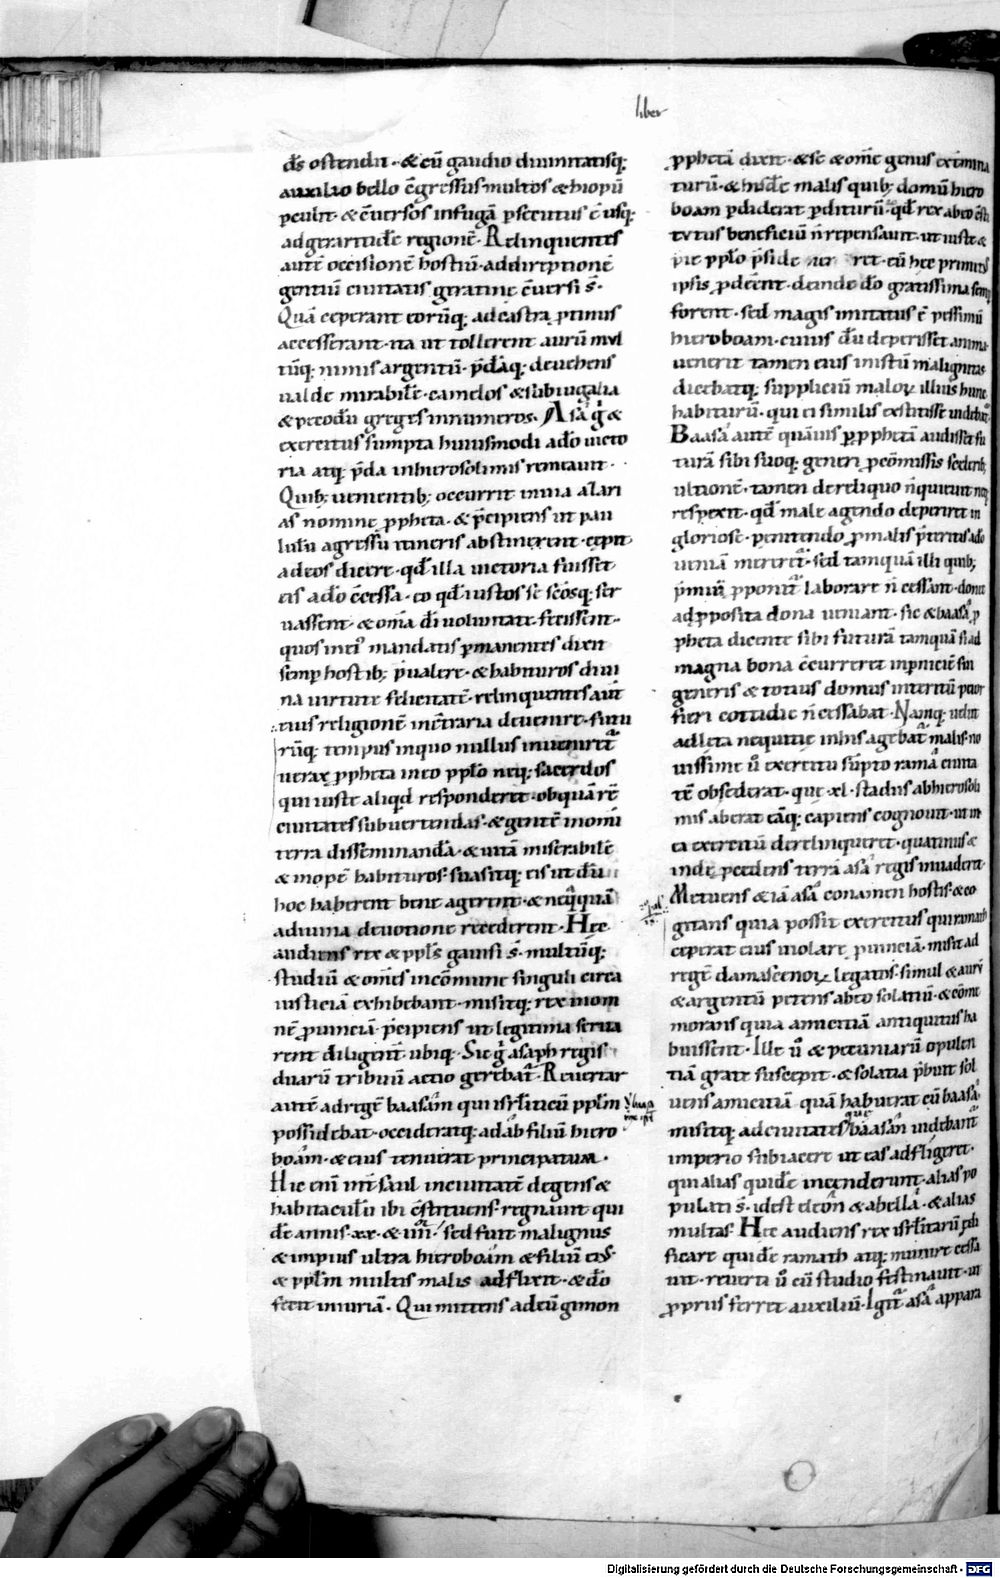 liber
d̄s ostendit · & cū gaudio diuinitatisq;
auxilio bello ēgressus multos æthiopū
pculit · & c̄uersos infugā psecutus ē usq;
ad gerartidē regionē · Relinquentes
autē occisionē hostiū · addireptionē
gentiū ciuitatis geratine c̄uersi s̄ ·
Quā ceperant eorūq; ad castra protinus
accesserant · ita ut tollerent aurū mul
tūq; nimis argentū · p̄dāq; deuehens
ualde mirabilē · camelos & subiugalia
& pecodū greges innumeros · Asā g̊ &
exercitus sumpta huiusmodi ad̄o uicto
ria atq; p̄da inhierosolimis remeauit ·
Quib; uenientib; occurrit inuia a lari
as nomine ppheta · & p̄cipiens ut pau
lulū agressū itineris abstinerent · cepit
ad eos dicere · qd̄ illa uictoria fuisset
eis ad̄o c̄cessa · eo qd̄ iustos se sc̄osq; ser
uassent · & om̄a dī uoluntate fecissent ·
quos in ei' mandatis pmanentes dixit
semp hostib; p̄ualere · & habituros diui
na uirtute felicitatē · relinquentes aut̄
eius religionē inc̄traria deuenire · futu
rūq; tempus inquo nullus inueniret̄
uerax ppheta ineo pplo neq; sacerdos
qui iuste aliqd responderet · obquā rē
ciuitates subuertendas · & gentē inom̄i
terra disseminandā · & uitā miserabilē
& inopē habituros · suasitq; eis ut dū
hoc haberent bene agerent · & neq̄quā
adiuina deuotione recederent · Hec
audiens rex & ppls gauisi s̄ · multūq;
studiū & om̄s incōmune singuli circa
iusticiā exhibebant · misitq; rex inom
nē puinciā p̄cipiens ut legitima serua
rent diligent̄ ubiq; · Sic g̊ asaph regis
duarū tribuū actio gerebat̄ · Reuertar
autē ad regē baasām qui isrlīticū pplm
possidebat · occideratq; adāb filiū hiero
boām · & eius tenuerat principatum ·
Hic eni int̄ saul inciuitatē degens &
habitaculū ibi c̄stituens · regnauit qui
dē annis · xx · & iiii · sed fuit malignus
& impius ultra hieroboām & filiū eius ·
& pplm multis malis adflixit · & d̄o
fecit iniuriā · Qui mittens ad eū gimon
pphetā dixit · & se & om̄e genus extermina
turū · & hisdē malis quib; domū hiero
boam pdiderat pditurū · qd̄ rex ab eo c̄sti
tutus beneficiū n̄ repensauit · ut iuste &
pie pplo p̄side ret · cū hec primitus
ipsis pdēent · deinde d̄o gratissima semp
forent · sed magis imitatus ē pessimū
hieroboam · cuius dū deperisset anima ·
uenerit tamen eius iniustū malignitas ·
dicebatq; suppliciū maloꝝ illius hunc
habiturū · qui ei similis extitisse uidebat̄ ·
Baasā autē quāuis p pphetā audisset fu
turā sibi suoq; generi p cōmissis scelerib;
ultionē · tamen dereliquo n̄ quieuit neq;
respexit · qd̄ male agendo deperiret in
gloriose · penitendo p malis p̄teritis ad̄o
ueniā mereret̄ · sed tamquā illi quib;
p̄miū pponit̄ laborare n̄ cessant · donec
ad pposita dona ueniant · sic & baasā p
pheta dicente sibi futurā tamquā si ad
magna bona c̄curreret inpniciē sui
generis & totius domus interitū peior
fieri cottidie n̄ cessabat · Namq; uelut
adleta nequitie inhis agebat̄ malis · no
uissime ū exercitu sūpto ramā ciuita
tē obsederat · que · xl · stadiis abhierosoli
mis aberat eāq; capiens cognouit · ut in
ea exercitū derelinqueret · quatinus &
inde pcedens terrā asā regis inuaderet ·
Metuens & iā asā conamen hostis · & co
gitans quia possit exercitus qui ramath
ceperat eius uiolare puinciā · misit ad
regē damascenoꝝ legatos · simul & aurū
& argentū petens ab eo solatiū · & cōme
morans quia amicitiā antiquitus ha
buissent · Ille ū & pecuniarū opulen
tiā grate suscepit · & solatia p̄buit sol
uens amicitiā quā habuerat cū baasā
misitq; ad ciuitates que baasān uidebant̄
imperio subiacere ut eas adfligeret ·
qui alias quidē incenderunt · alias po
pulati s̄ · idest eleōn & abellā · & alias
multas · Hec audiens rex isrlitarū edi
ficare quidē ramath atq; munire cessa
uit · reuerti ū cū studio festinauit · ut
ppriis ferret auxiliū · Igit̄ asā appara